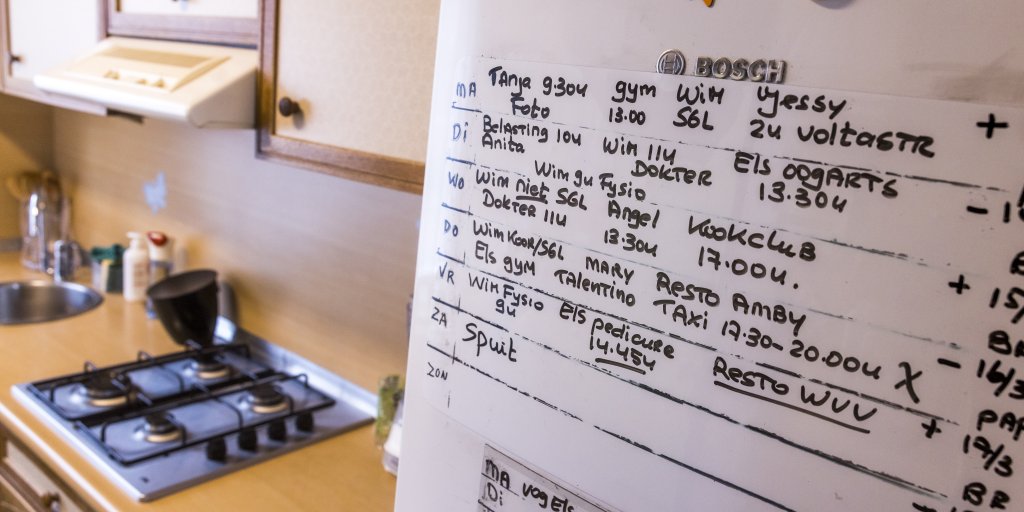 BOSCH
MA Tanja 9.30u gym Wim Yessy +
Foto 13.00 SGL 2u VoltaSTR
Di Belasting 10u Wim 11u Els oogARTS
Anita DOKTER 13.30u
Wim 9u Fysio
Wo Wim niet SGL Angel KookcluB
DOKTER 11u 13.30u 17.00u.
DO Wim Koor/SGL MARY RESTO AMBY
Els gym TALENTINO TAXi 17.30-20.00u X
VR Wim Fysio Els pedicure RESTO WVV +
9u 14.45u
ZA Spuit
ZON
- 16/3
17/3
BR
MA vogels
Di